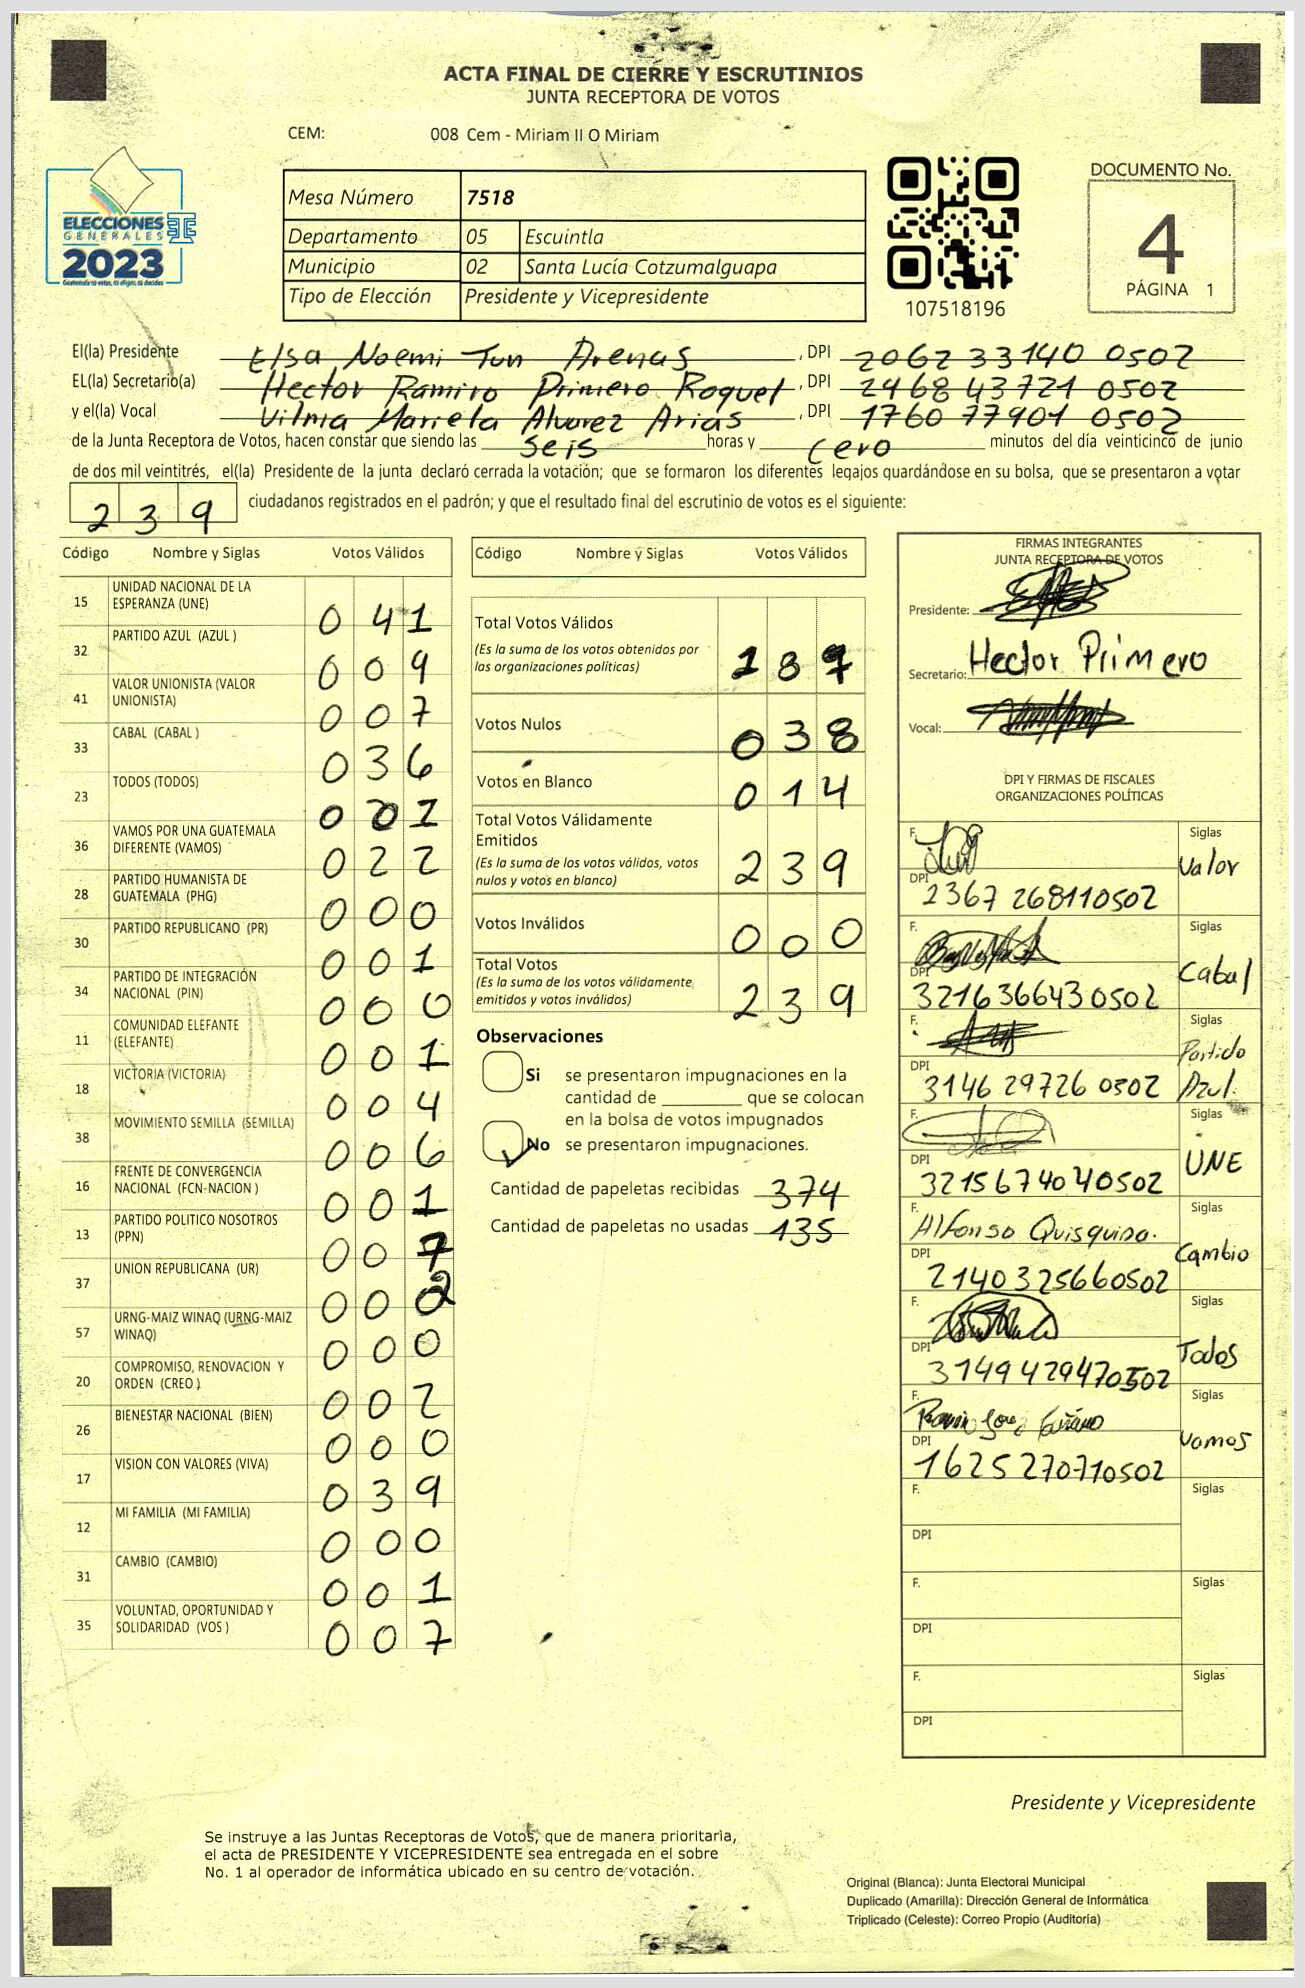 ACTA FINAL DE CIERRE Y ESCRUTINIOS
JUNTA RECEPTORA DE VOTOS
CEM: 008 Cem - Miriam II O Miriam
ELECCIONES
GENERALES
2023
Mesa Número 7518
Departamento 05 Escuintla
Municipio 02 Santa Lucía Cotzumalguapa
Tipo de Elección Presidente y Vicepresidente
107518196
DOCUMENTO No.
4
PÁGINA 1
El(la) Presidente Elsa Noemi Tun Arenas, DPI 2062 33140 0502
EL(la) Secretario(a) Hector Ramiro Primero Roquel, DPI 2468 43721 0502
y el(la) Vocal Vilma Mariela Alvarez Arias, DPI 1760 77901 0502
de la Junta Receptora de Votos, hacen constar que siendo las seis horas y cero minutos del día veinticinco de junio
de dos mil veintitrés, el(la) Presidente de la junta declaró cerrada la votación; que se formaron los diferentes legajos guardándose en su bolsa, que se presentaron a votar
239 ciudadanos registrados en el padrón; y que el resultado final del escrutinio de votos es el siguiente:
Código Nombre y Siglas Votos Válidos
15 UNIDAD NACIONAL DE LA ESPERANZA (UNE) 041
32 PARTIDO AZUL (AZUL ) 009
41 VALOR UNIONISTA (VALOR UNIONISTA) 007
33 CABAL (CABAL ) 036
23 TODOS (TODOS)
36 VAMOS POR UNA GUATEMALA DIFERENTE (VAMOS) 022
28 PARTIDO HUMANISTA DE GUATEMALA (PHG) 000
30 PARTIDO REPUBLICANO (PR) 001
34 PARTIDO DE INTEGRACIÓN NACIONAL (PIN) 000
11 COMUNIDAD ELEFANTE (ELEFANTE) 001
18 VICTORIA (VICTORIA) 004
38 MOVIMIENTO SEMILLA (SEMILLA) 006
16 FRENTE DE CONVERGENCIA NACIONAL (FCN-NACION ) 001
13 PARTIDO POLITICO NOSOTROS (PPN) 007
37 UNION REPUBLICANA (UR) 002
57 URNG-MAIZ WINAQ (URNG-MAIZ WINAQ) 000
20 COMPROMISO, RENOVACION Y ORDEN (CREO ) 002
26 BIENESTAR NACIONAL (BIEN) 000
17 VISION CON VALORES (VIVA) 039
12 MI FAMILIA (MI FAMILIA) 000
31 CAMBIO (CAMBIO) 001
35 VOLUNTAD, OPORTUNIDAD Y SOLIDARIDAD (VOS ) 007
Código Nombre y Siglas Votos Válidos
Total Votos Válidos 187
(Es la suma de los votos obtenidos por
las organizaciones políticas)
Votos Nulos 038
Votos en Blanco 014
Total Votos Válidamente
Emitidos 239
(Es la suma de los votos válidos, votos
nulos y votos en blanco)
Votos Inválidos 000
Total Votos 239
(Es la suma de los votos válidamente
emitidos y votos inválidos)
Observaciones
Si se presentaron impugnaciones en la
cantidad de ________ que se colocan
en la bolsa de votos impugnados
No se presentaron impugnaciones.
Cantidad de papeletas recibidas 374
Cantidad de papeletas no usadas 135
FIRMAS INTEGRANTES
JUNTA RECEPTORA DE VOTOS
Presidente:
Secretario: Hector Primero
Vocal:
DPI Y FIRMAS DE FISCALES
ORGANIZACIONES POLÍTICAS
F. Siglas Valor
DPI 2367 268110502
F. Siglas Cabal
DPI 3216366430502
F. Siglas Partido Azul.
DPI 3146 29726 0302
F. Siglas UNE
DPI 3215674040502
F. Alfonso Siglas Cambio
DPI 2140325660502
F. Siglas Todos
DPI 3149429470502
F. Siglas Vamos
DPI 1625270710502
F. Siglas
DPI
F. Siglas
DPI
F. Siglas
DPI
Presidente y Vicepresidente
Se instruye a las Juntas Receptoras de Votos, que de manera prioritaria,
el acta de PRESIDENTE Y VICEPRESIDENTE sea entregada en el sobre
No. 1 al operador de informática ubicado en su centro de votación.
Original (Blanca): Junta Electoral Municipal
Duplicado (Amarilla): Dirección General de Informática
Triplicado (Celeste): Correo Propio (Auditoría)